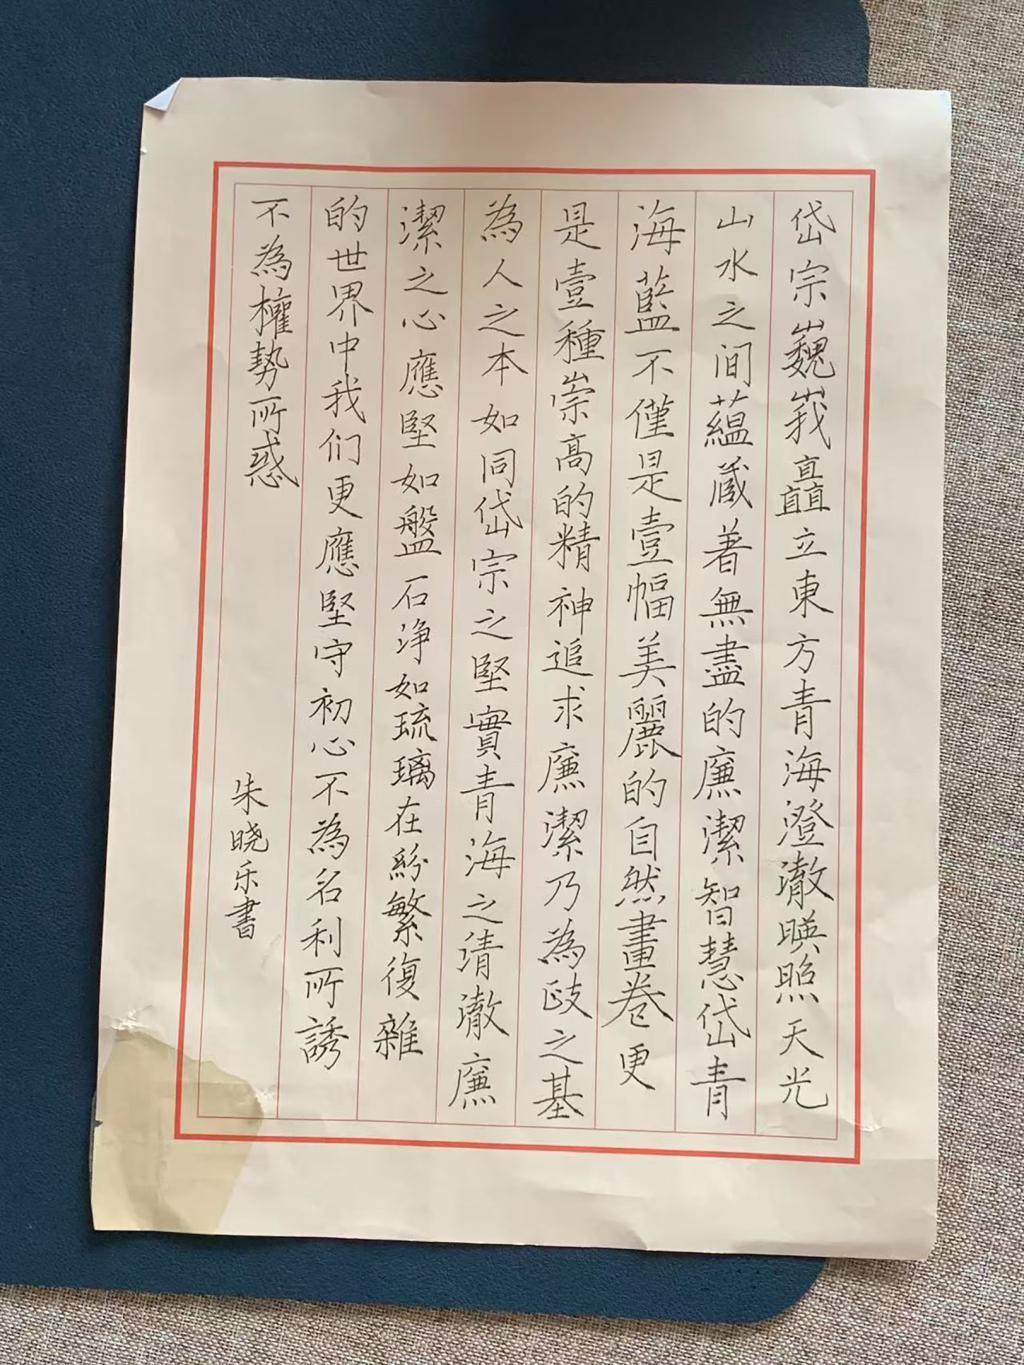 岱宗巍峩矗立東方青海澄澈暎照天光
山水之间蘊藏著無盡的廉潔智慧岱青
海藍不僅是壹幅美麗的自然畫卷更
是壹種崇高的精神追求廉潔乃為政之基
為人之本如同岱宗之堅實青海之清澈廉
潔之心應堅如盤石淨如琉璃在紛繁復雜
的世界中我们更應堅守初心不為名利所誘
不為權勢所惑
朱晓乐書